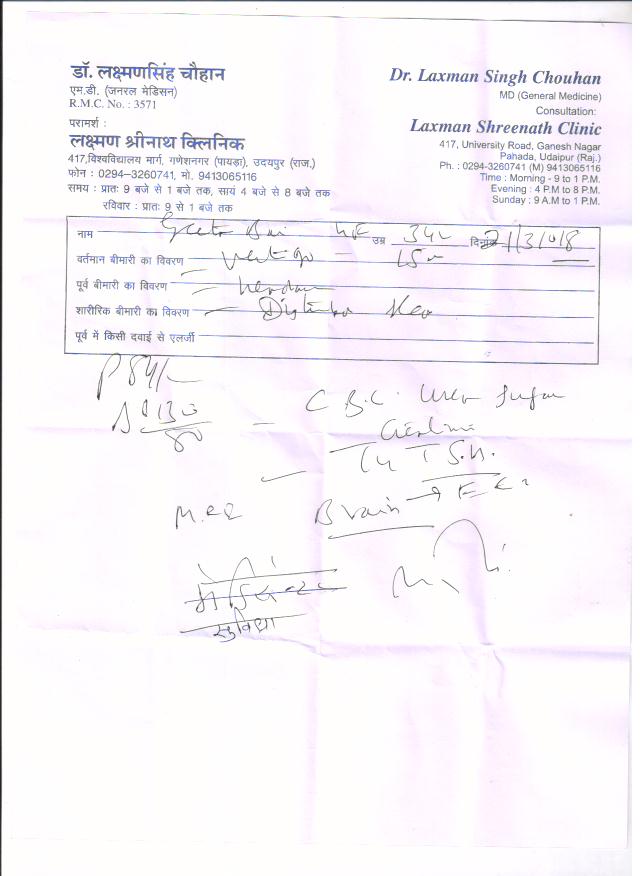 डॉ. लक्ष्मणसिंह चौहान
एम.डी. (जनरल मेडिसन)
R.M.C. No. : 3571
परामर्श :
लक्ष्मण श्रीनाथ क्लिनिक
417,विश्वविद्यालय मार्ग, गणेशनगर (पायड़ा), उदयपुर (राज.)
फोन : 0294-3260741, मो. 9413065116
समय : प्रातः 9 बजे से 1 बजे तक, सायं 4 बजे से 8 बजे तक
रविवार : प्रातः 9 से 1 बजे तक
Dr. Laxman Singh Chouhan
MD (General Medicine)
Consultation:
Laxman Shreenath Clinic
417, University Road, Ganesh Nagar
Pahada, Udaipur (Raj.)
Ph. : 0294-3260741 (M) 9413065116
Time : Morning - 9 to 1 P.M.
Evening : 4 P.M to 8 P.M.
Sunday : 9 A.M to 1 P.M.
नाम Geeta Bai उम्र 34 दिनांक
वर्तमान बीमारी का विवरण Vertigo
पूर्व बीमारी का विवरण
शारीरिक बीमारी का विवरण
पूर्व में किसी दवाई से एलर्जी
P 84/-
130/80
C.B.C. Urea Sugar
T.S.H.
Brain →
सुविधा